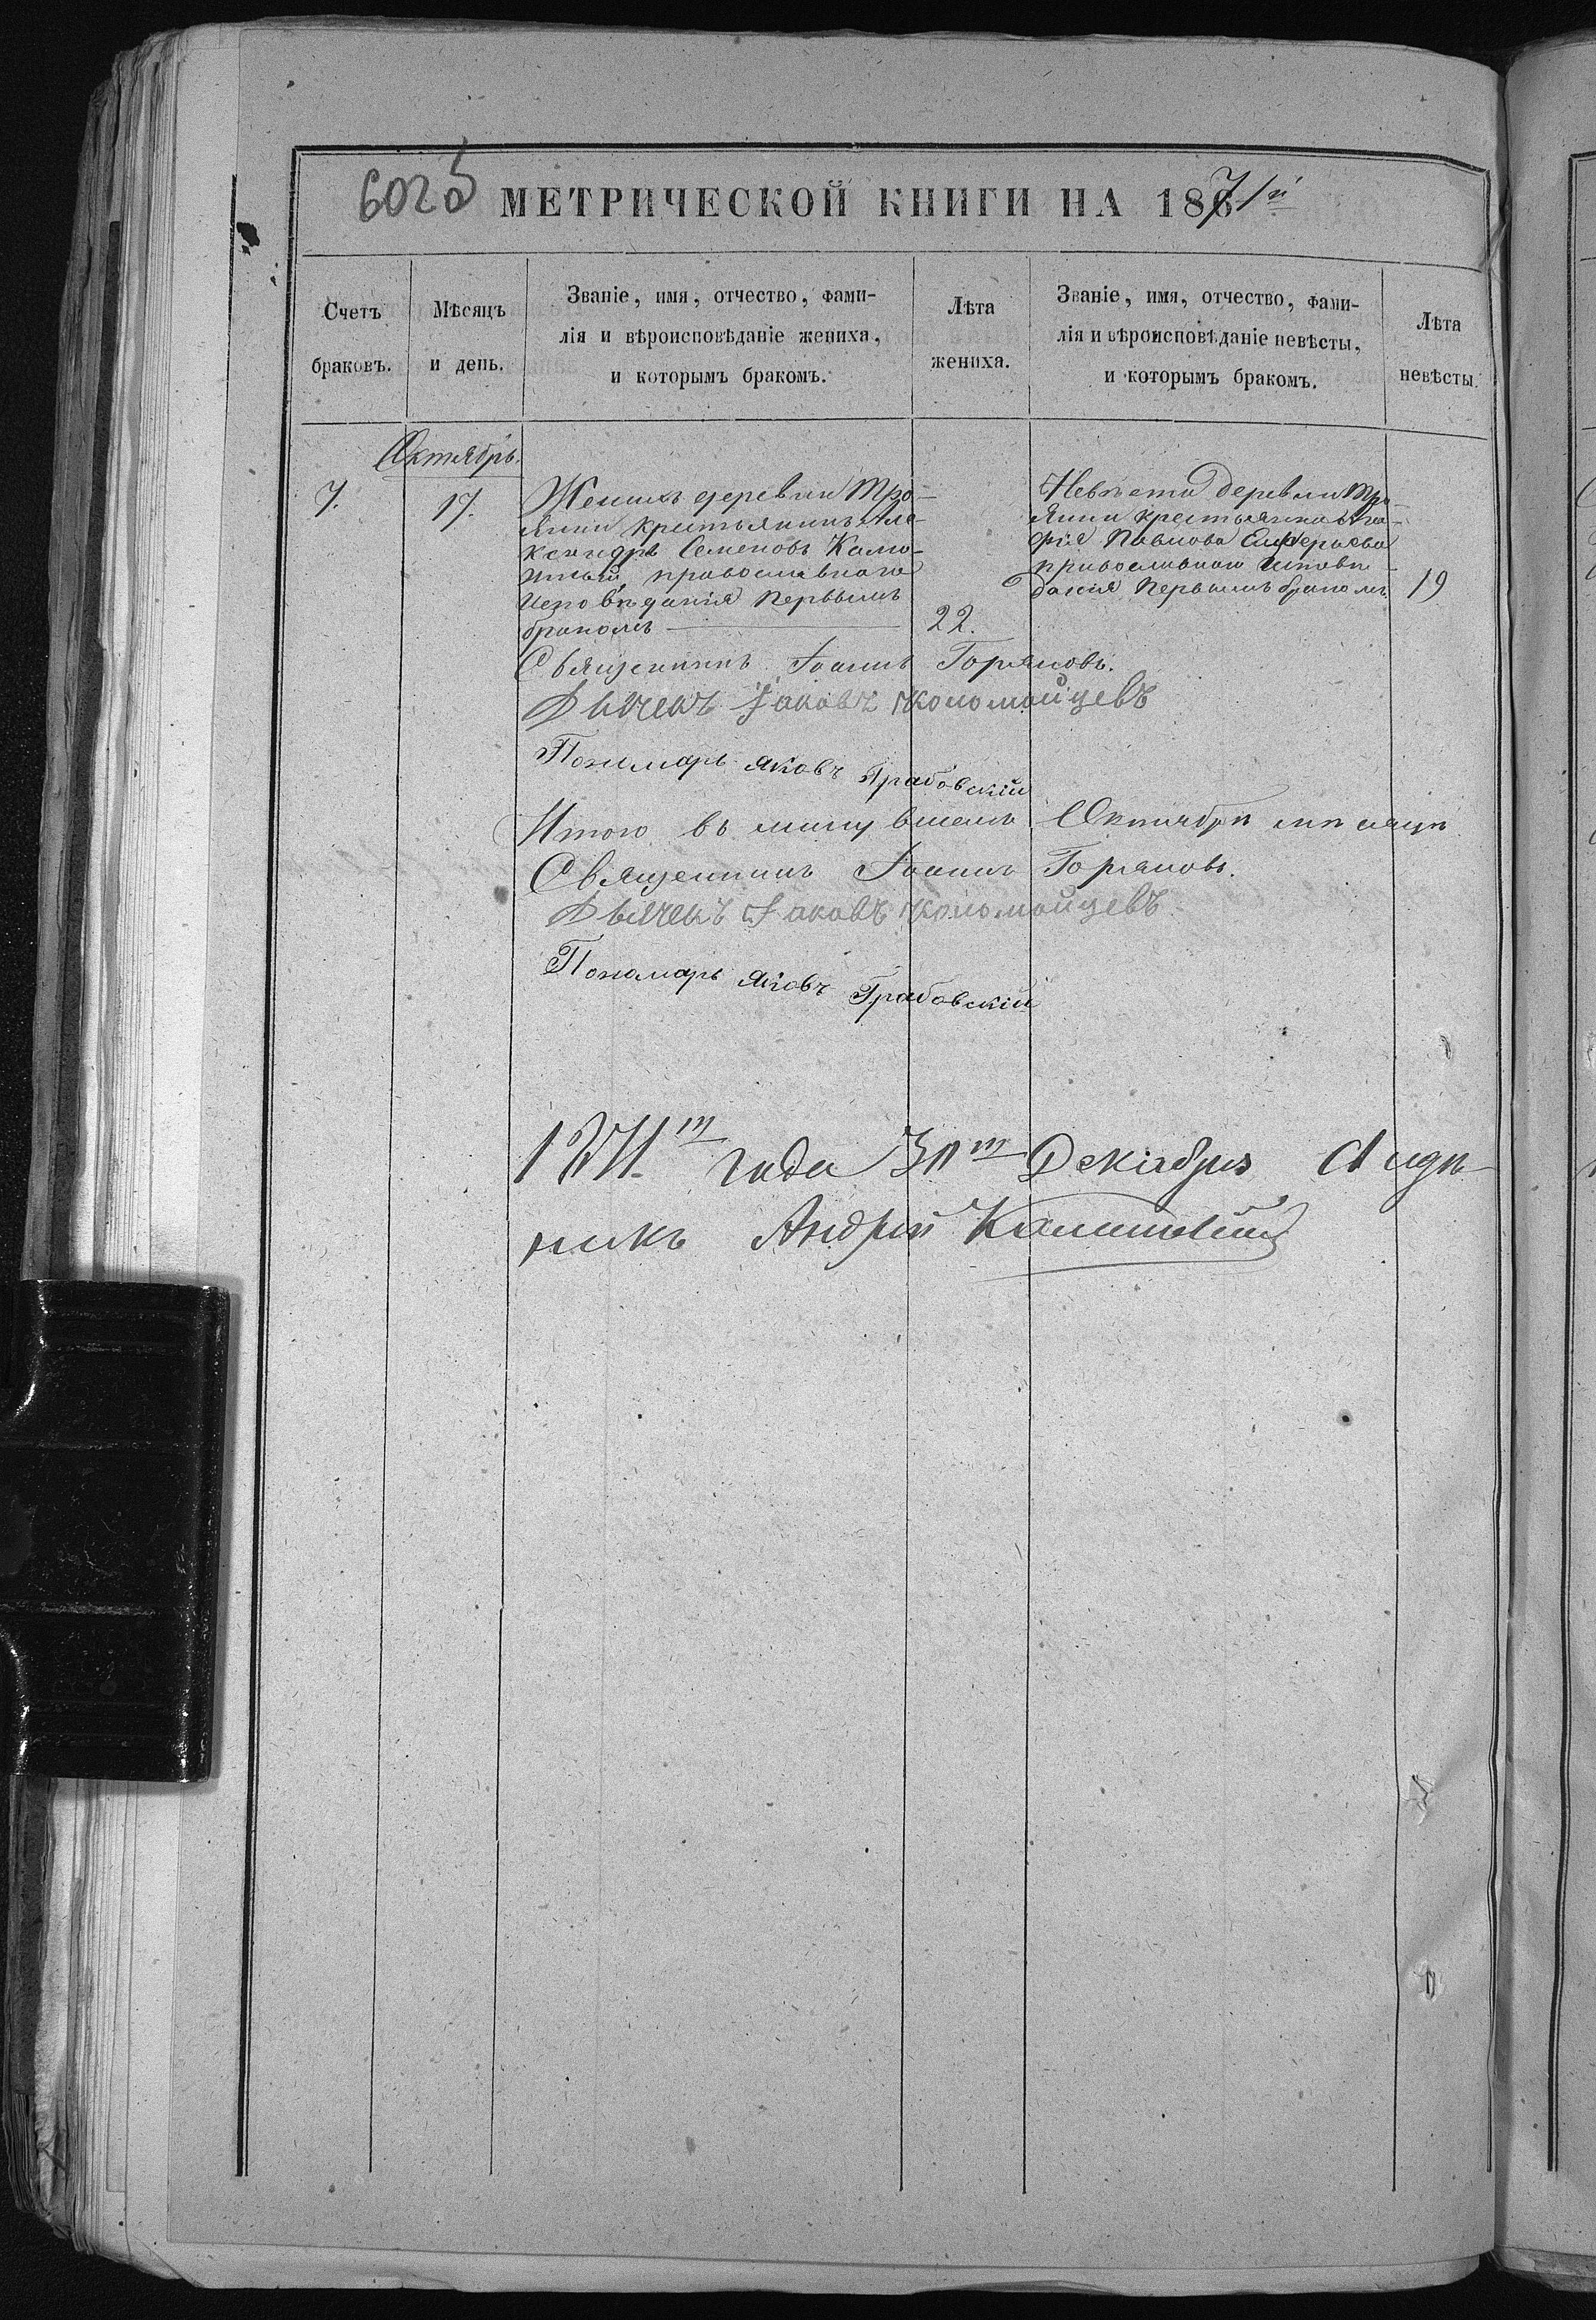 602 об
МЕТРИЧЕСКОЙ КНИГИ НА 1871й
Счетъ
браковъ.
Мѣсяцъ
и день.
Званіе, имя, отчество, фами-
лія и вѣроисповѣданіе жениха,
и которымъ бракомъ.
Лѣта
жениха.
Званіе, имя, отчество, фами-
лія и вѣроисповѣданіе невѣсты,
и которымъ бракомъ.
Лѣта
невѣсты.
Октябрь.
7.
17.
Женихъ деревни Тро-
янки крестьянинъ Але-
ксандръ Семеновъ
православнаго
исповѣданія первымъ
бракомъ
22.
Невѣста деревни Тро-
янки крестьянка Ага-
фія Павлова
православнаго исповѣ-
данія первымъ бракомъ
19
Священникъ Іоаннъ Горяновъ.
Дьячекъ Іаковъ Коломойцевъ
Пономарь Яковъ Грабовскій
Итого въ минувшемъ Октябрѣ мѣсяцѣ
Священникъ Іоаннъ Горяновъ.
Дьячекъ Іаковъ Коломойцевъ
Пономарь Яковъ Грабовскій
1871го года 30го Декабря
Андрей